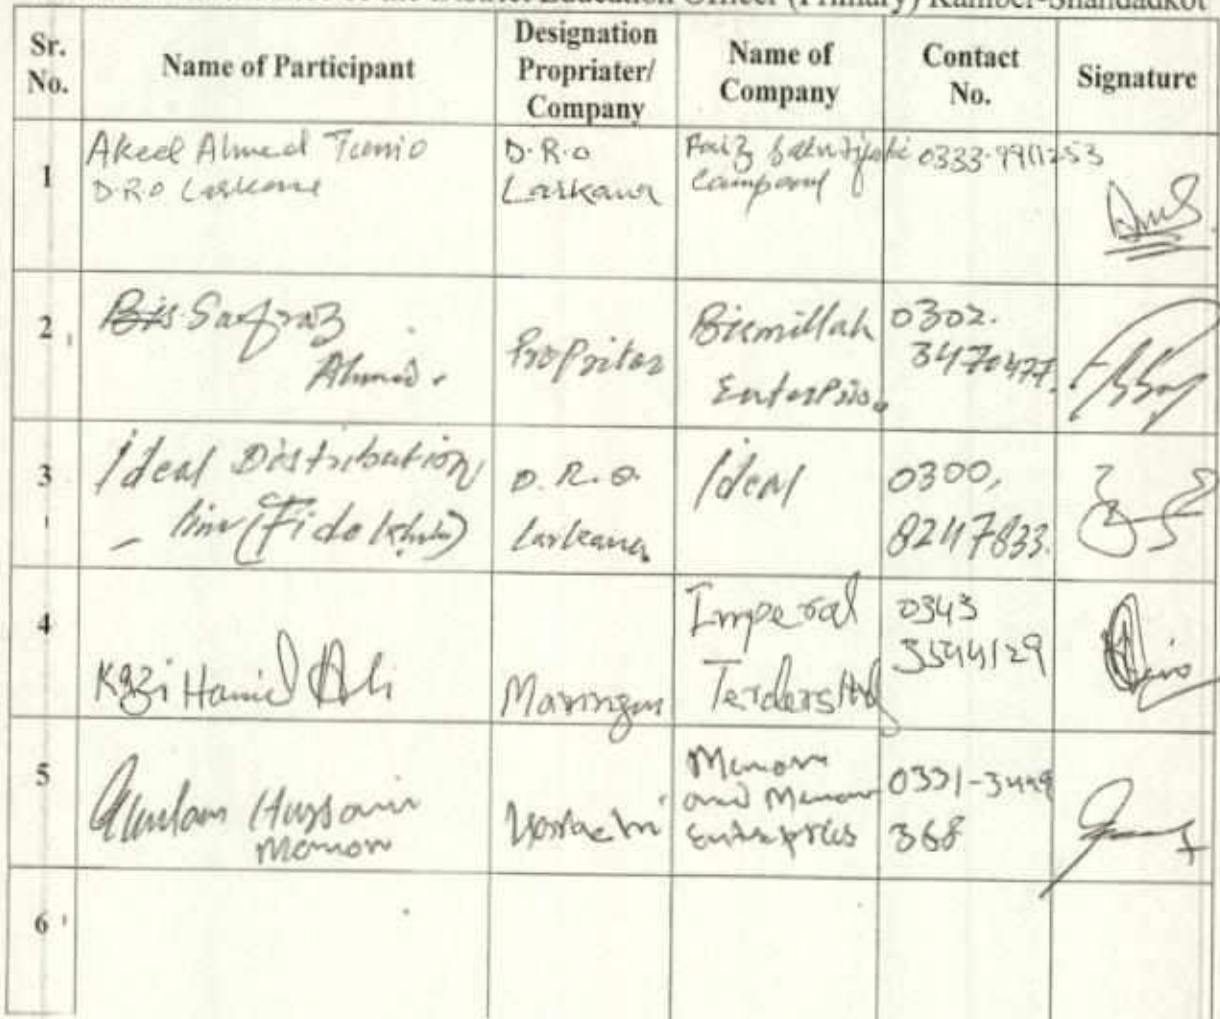 the District Education Officer (Primary) Kamber-Shahdadkot
Sr. No. Name of Participant Designation Propriater/ Company Name of Company Contact No. Signature
1 Akeel Ahmed Tunio D.R.O Larkana D.R.O Larkana Company 0333-9911253
2 Sarfraz Ahmed. Propritor Bismillah Enterpris. 0302. 3470477.
3 Ideal Distribution D.R.O. Larkana Ideal 0300, 8247833.
4 Kazi Hamid Ali Imperal Terders 0343 3544129
5 Hussain Memon Memon and Memon Enterprises 0331-3449 368
6